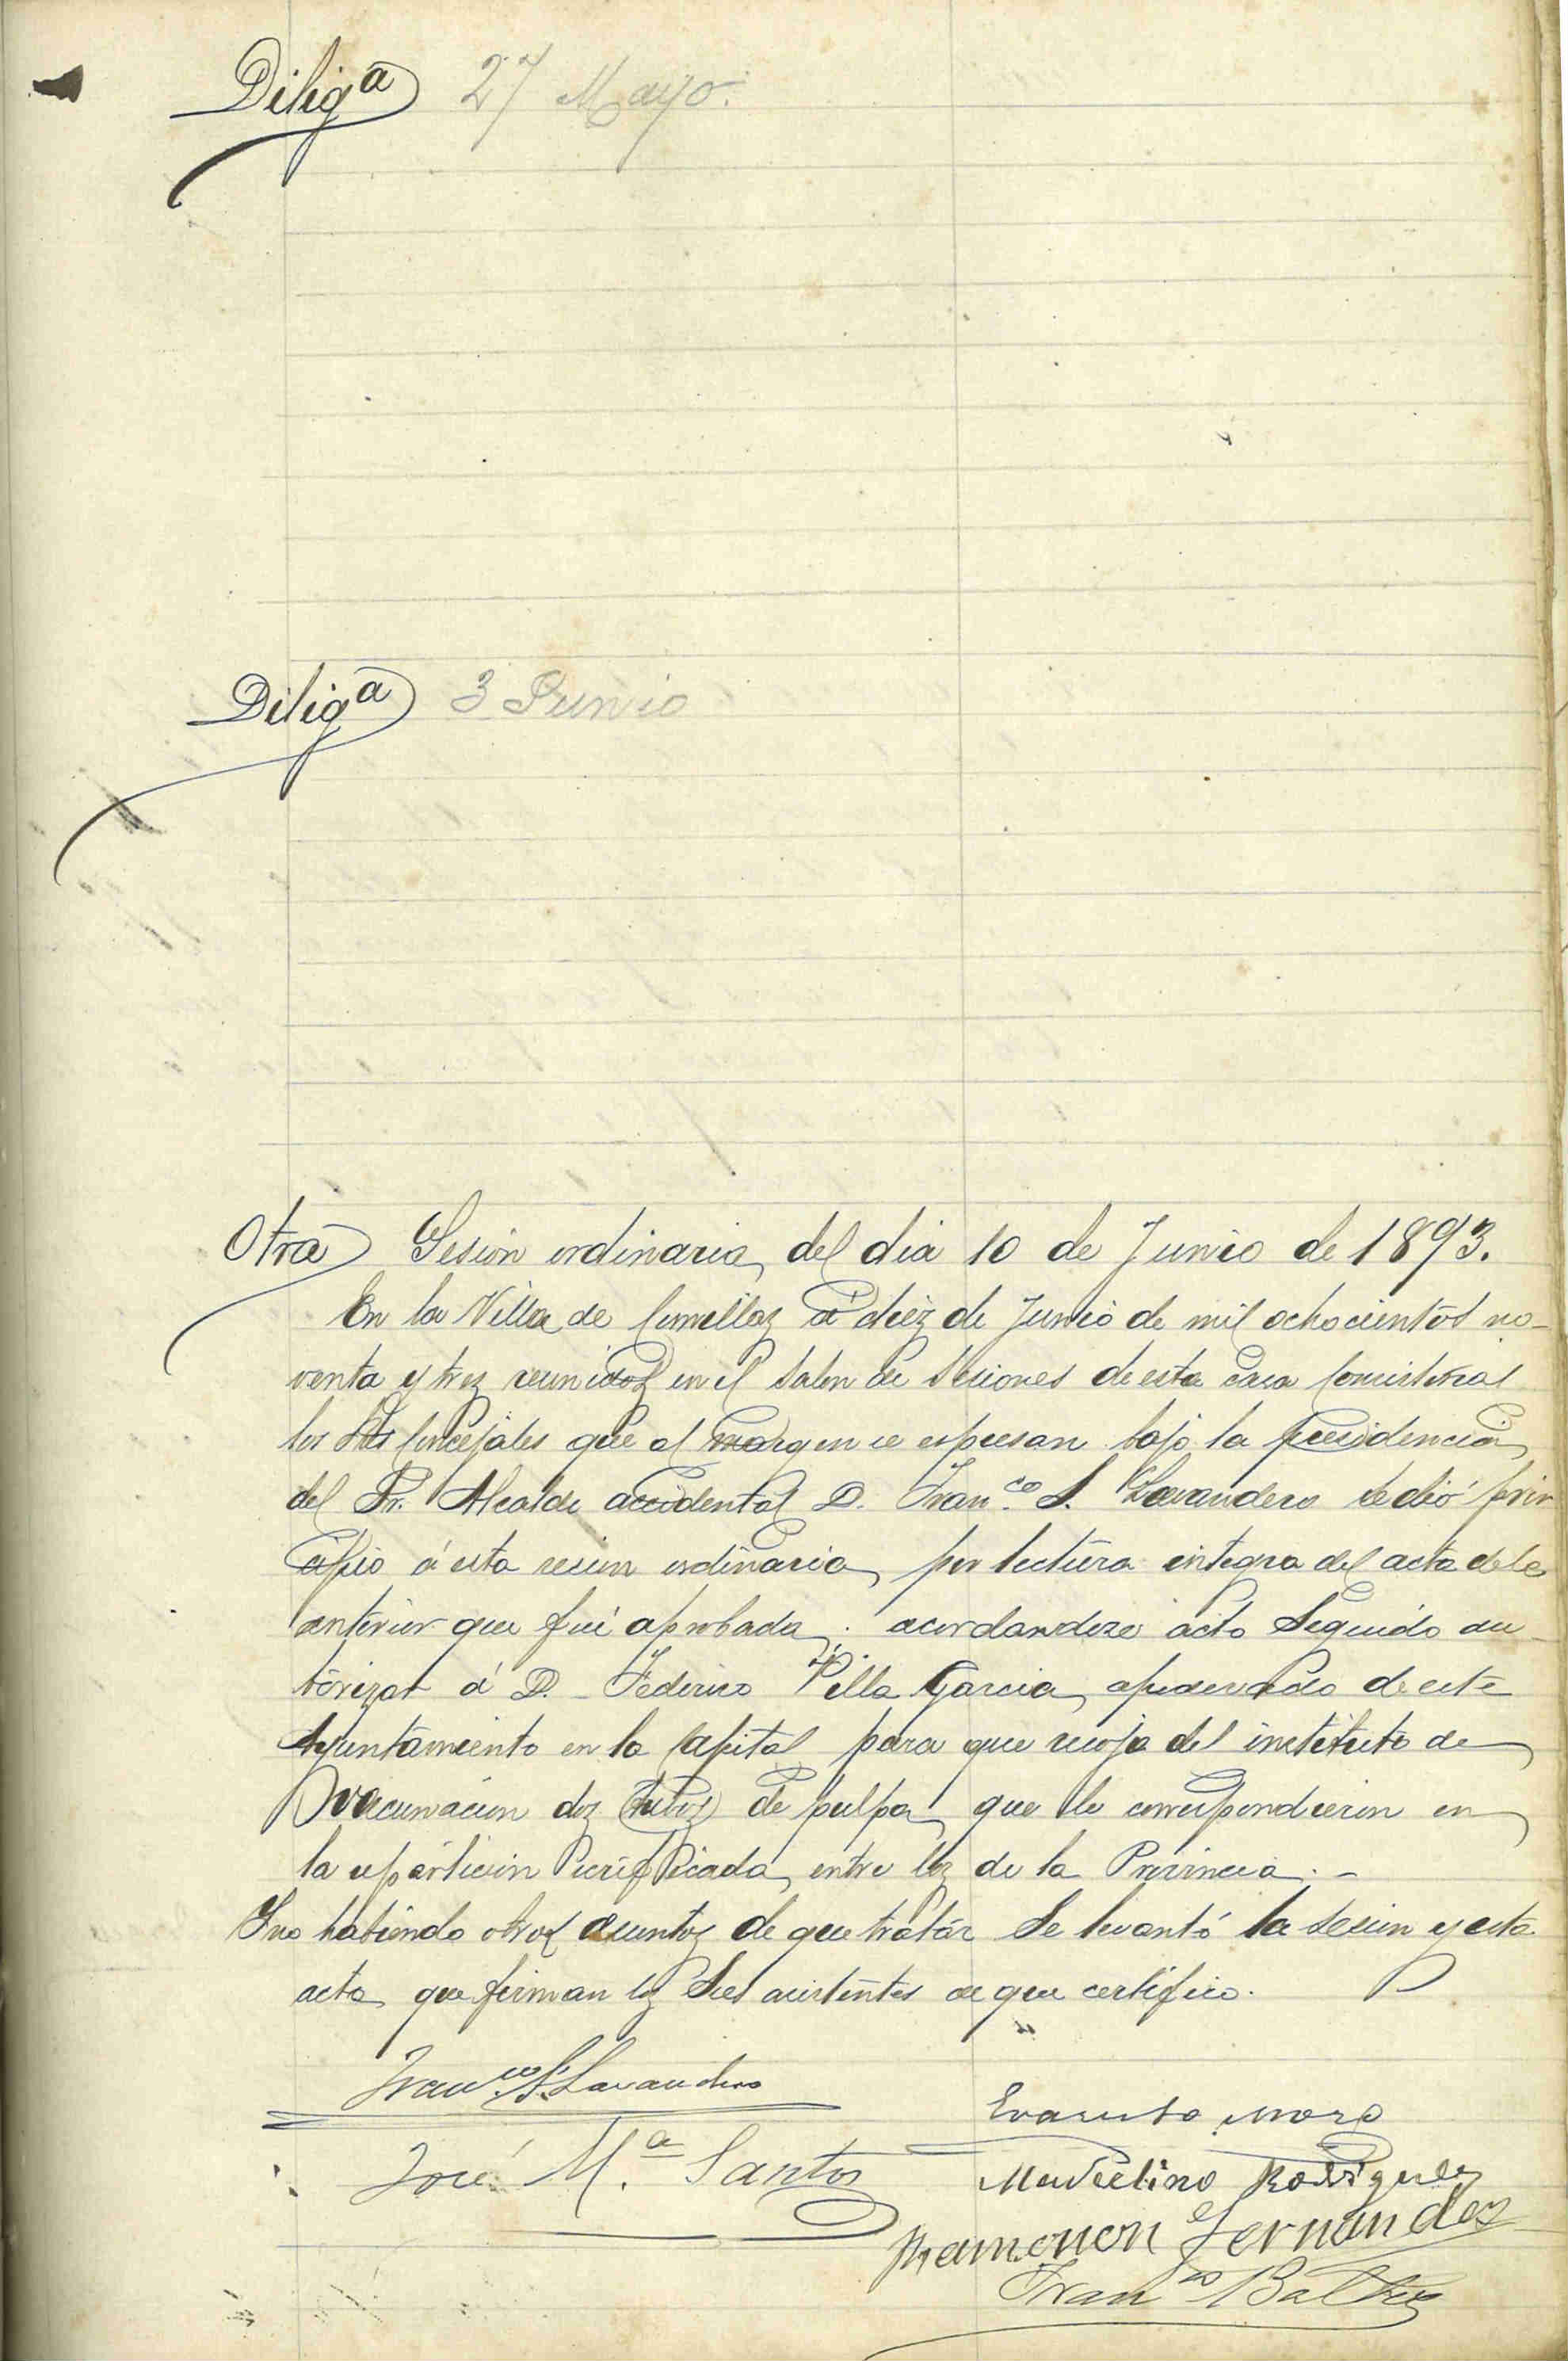 Diligª 27 Mayo.
Diligª 3 Junio
Otra Sesión ordinaria del dia 10 de Junio de 1893.
En la Villa de Comillas á diez de Junio de mil ochocientos no-
venta y trez reunidos en el Salon de Sesiones de esta Casa Consistorial
los Sres Concejales que al margen se espresan bajo la presidencia
del Sr. Alcalde accidental D. Franco S. Lavandero se dió prin
cipio á esta sesion ordinaria, por lectura integra del acta dela
anterior que fué aprobada; acordandose acto Seguido au-
torizar á D. Federico Villa Garcia, apoderado de este
Ayuntamiento en la Capital para que recoja del instituto de
vacunacion dos tubos de pulpa que le correspondieron en
la repartición verificada, entre los de la Provincia. -
Y no habiendo otros asuntos de que tratár Se levantó la sesion y esta
acta que firman los Sres asistentes de que certifico.
Franco S. Lavandero
Evaristo Moro
José Mª Santos
Marcelino Rodriguez
Ramon Fernandez
Franco